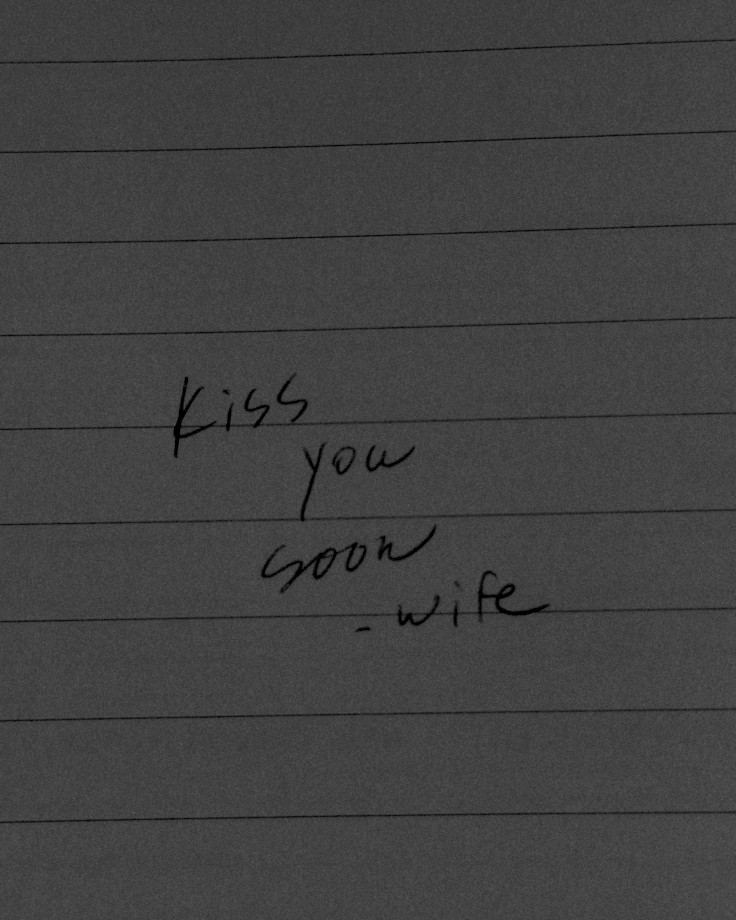 Kiss
you
soon
- wife